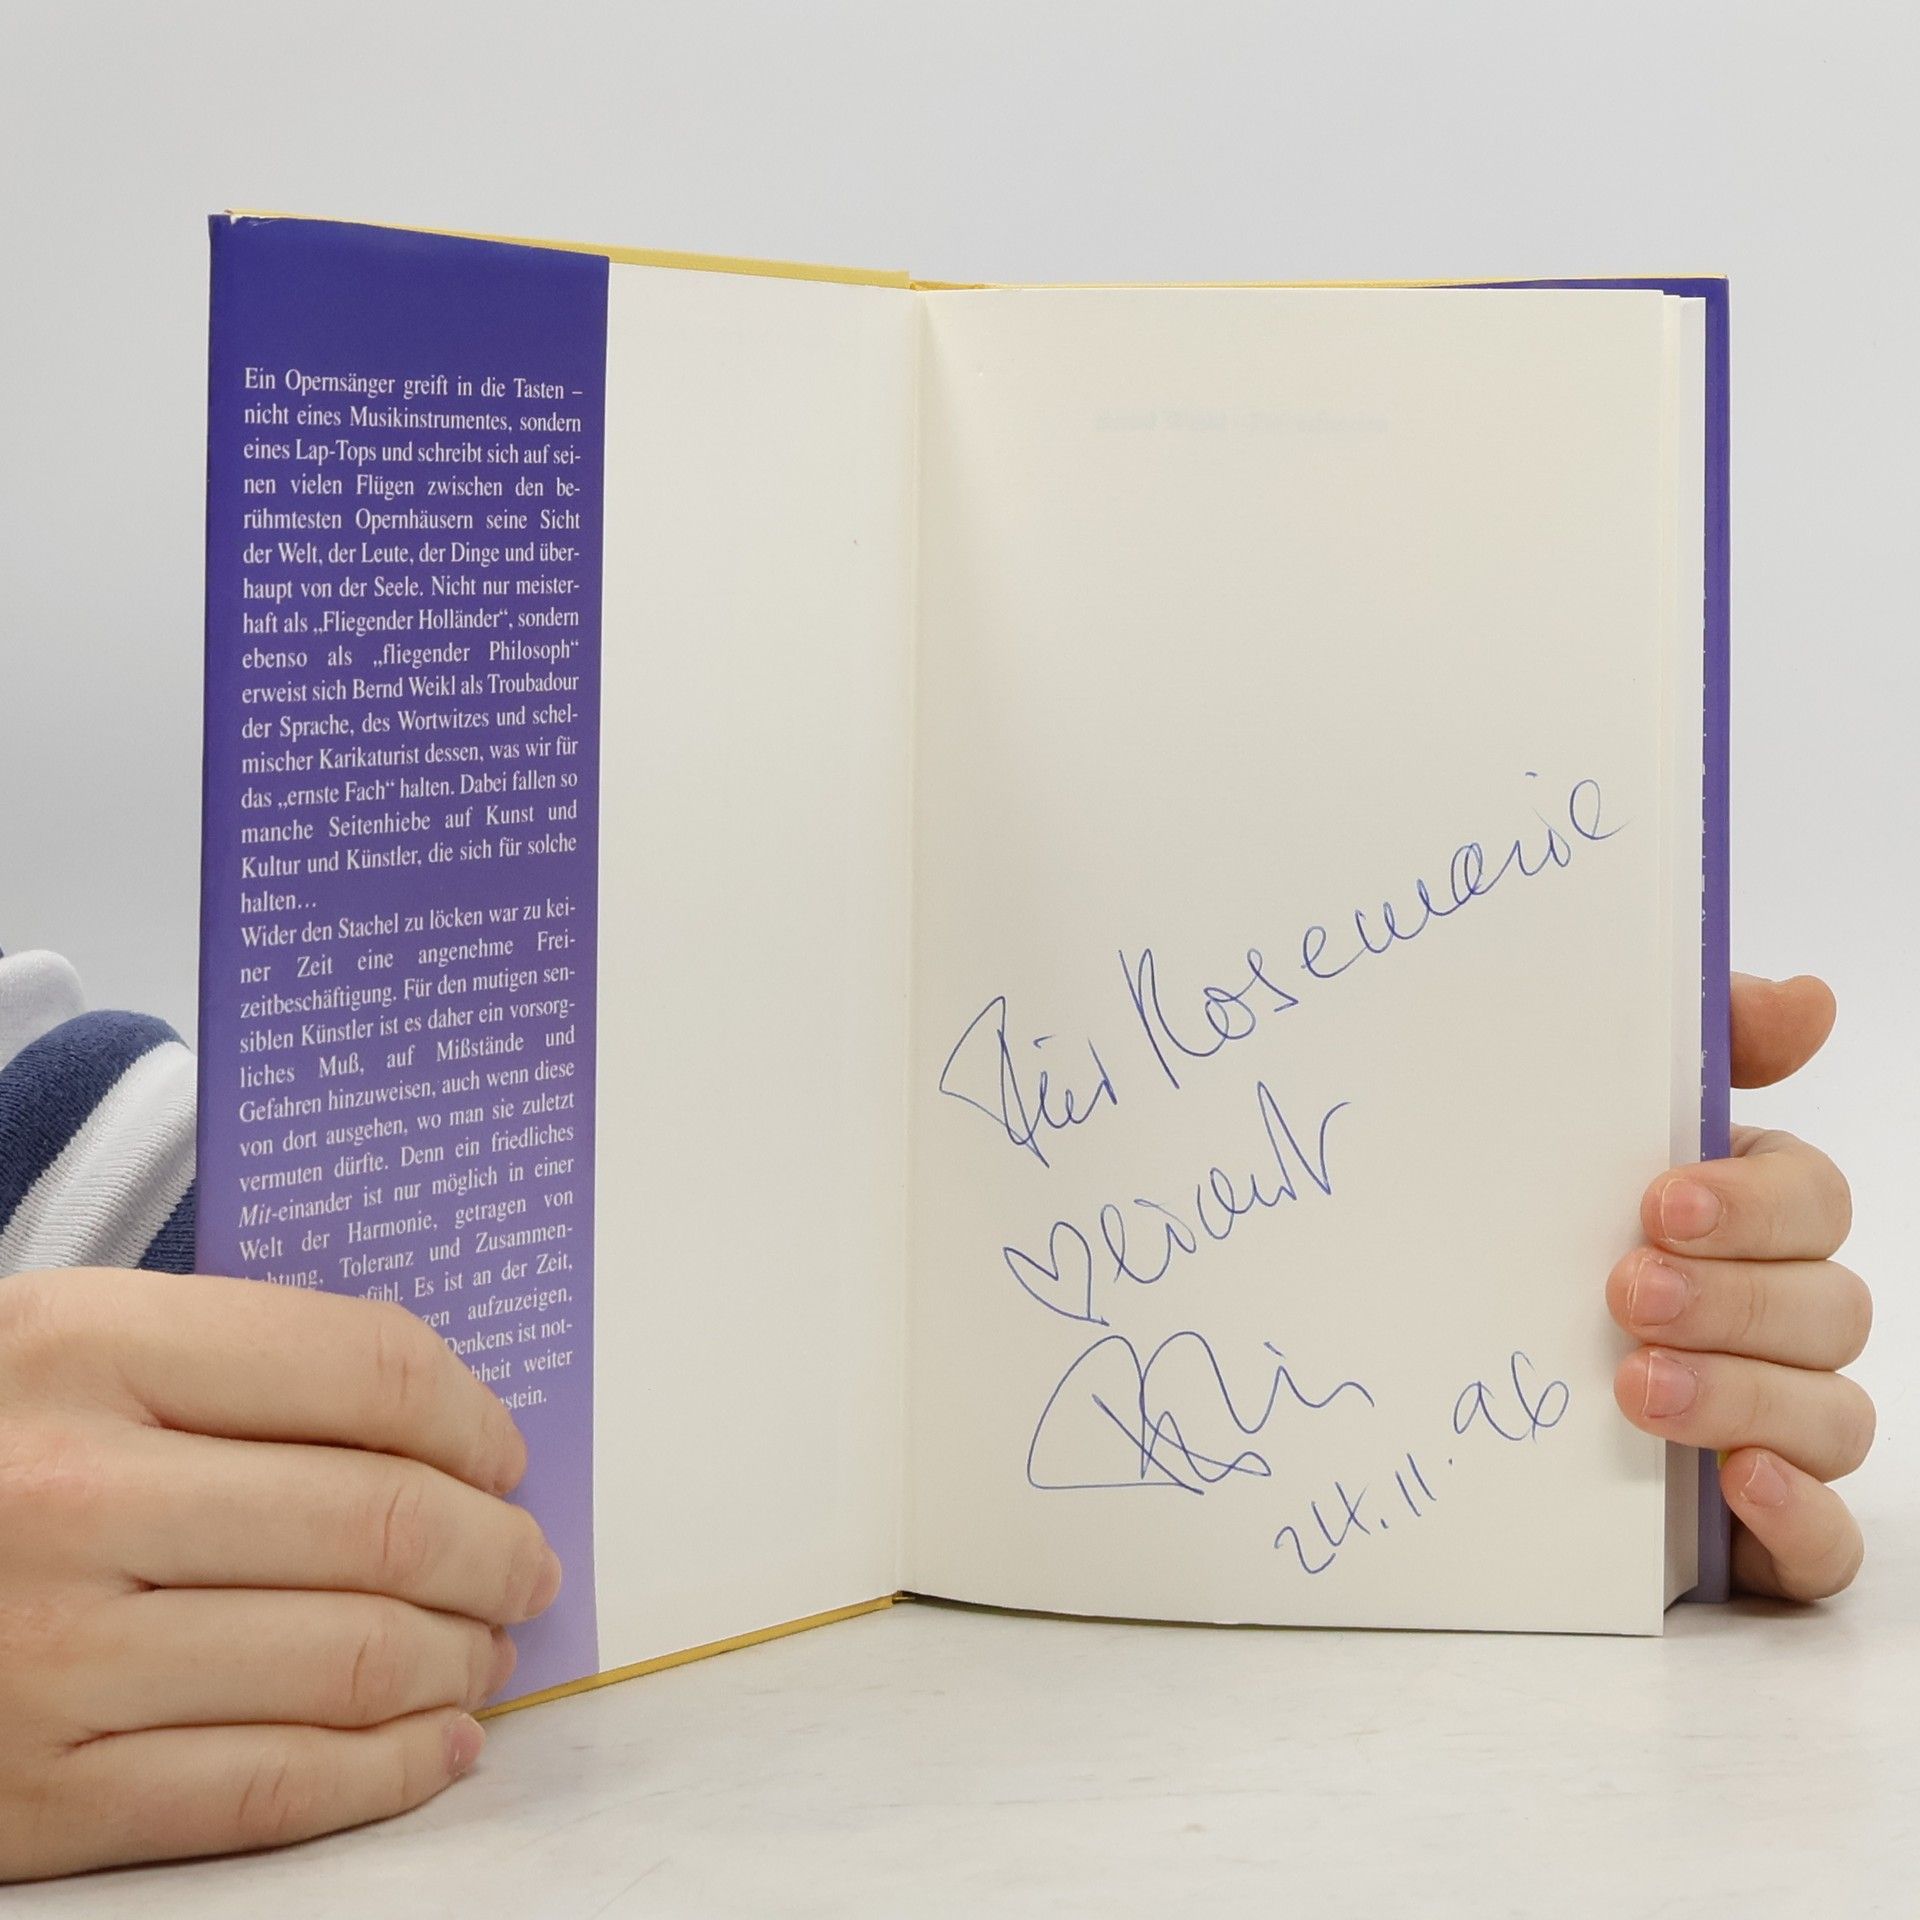 Ein Opernsänger greift in die Tasten –
nicht eines Musikinstrumentes, sondern
eines Lap-Tops und schreibt sich auf sei-
nen vielen Flügen zwischen den be-
rühmtesten Opernhäusern seine Sicht
der Welt, der Leute, der Dinge und über-
haupt von der Seele. Nicht nur meister-
haft als „Fliegender Holländer“, sondern
ebenso als „fliegender Philosoph“
erweist sich Bernd Weikl als Troubadour
der Sprache, des Wortwitzes und schel-
mischer Karikaturist dessen, was wir für
das „ernste Fach“ halten. Dabei fallen so
manche Seitenhiebe auf Kunst und
Kultur und Künstler, die sich für solche
halten…
Wider den Stachel zu löcken war zu kei-
ner Zeit eine angenehme Frei-
zeitbeschäftigung. Für den mutigen sen-
siblen Künstler ist es daher ein vorsorg-
liches Muß, auf Mißstände und
Gefahren hinzuweisen, auch wenn diese
von dort ausgehen, wo man sie zuletzt
vermuten dürfte. Denn ein friedliches
Mit-einander ist nur möglich in einer
Welt der Harmonie, getragen von
Toleranz und Zusammen-
Es ist an der Zeit,
aufzuzeigen,
Denkens ist not-
weiter
Für Rosemarie
24.11.96